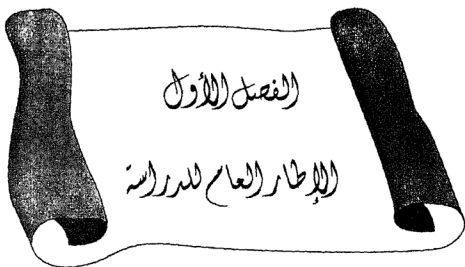 الفصل الأول
الإطار العام للدراسة